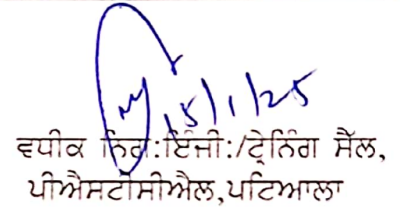 15/1/25
ਵਧੀਕ ਨਿਗ:ਇੰਜੀ:/ਟ੍ਰੇਨਿੰਗ ਸੈੱਲ,
ਪੀਐਸਟੀਸੀਐਲ,ਪਟਿਆਲਾ